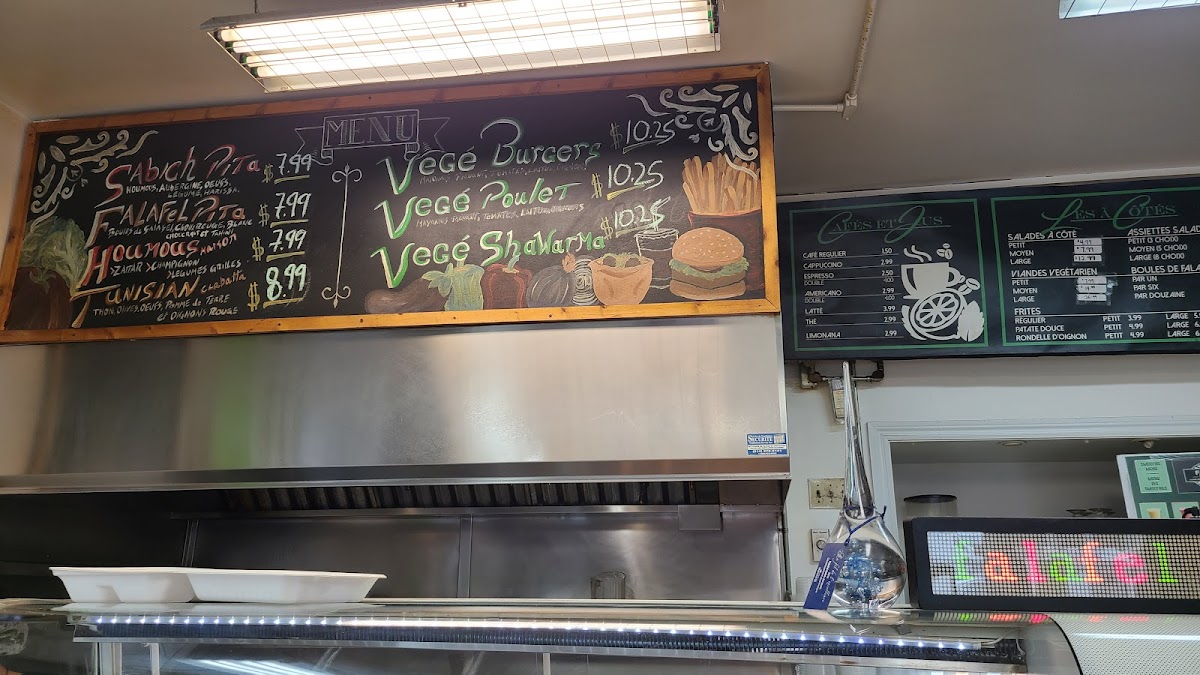 MENU
SABICH PITA $7.99
HOUMOUS, AUBERGINE, OEUFS,
LÉGUME, HARISSA.
FALAFEL PITA $7.99
BOULES DE FALAFEL, CHOU ROUGE, BLANC
CHOUCROUT ET TAHINI
HOUMOUS MAISON $7.99
ZAATAR CHAMPIGNON
LÉGUMES GRILLÉS
TUNISIAN CIABATTA $8.99
THON, OLIVES, OEUFS, POMME DE TERRE
ET OIGNONS ROUGE
VEGÉ BURGERS $10.25
VEGÉ POULET $10.25
VEGÉ SHAWARMA $10.25
CAFÉS ET JUS
CAFÉ REGULIER 1.50
CAPPUCCINO 2.99
ESPRESSO 2.50
DOUBLE 4.00
AMERICANO 2.99
DOUBLE 4.00
LATTÉ 3.99
THÉ 2.99
LIMONANA 2.99
LES À CÔTÉS
SALADES À CÔTÉ
PETIT
MOYEN
LARGE
VIANDES VEGÉTARIEN
PETIT
MOYEN
LARGE
FRITES
REGULIER PETIT 3.99 LARGE
PATATE DOUCE PETIT 4.99 LARGE
RONDELLE D'OIGNON PETIT 4.99 LARGE
ASSIETTES SALAD
PETIT (3 CHOIX)
MOYEN (5 CHOIX)
LARGE (8 CHOIX)
BOULES DE FALA
PAR UN
PAR SIX
PAR DOUZAINE
SÉCURITÉ
falafel